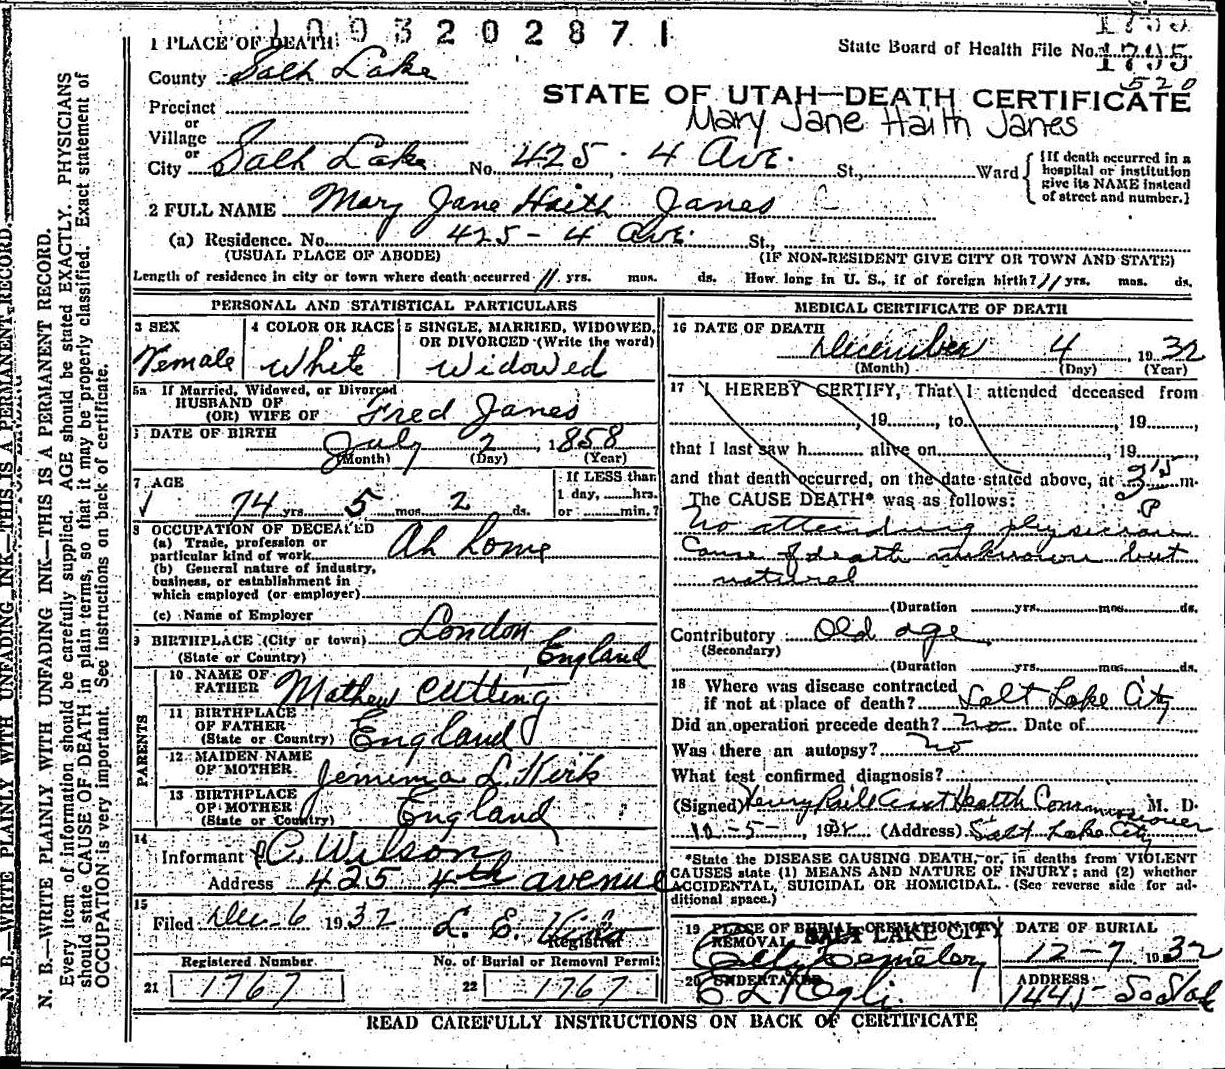 1093202871
1 PLACE OF DEATH
State Board of Health File No. 1795
County Salt Lake
520
STATE OF UTAH—DEATH CERTIFICATE
Precinct
or
Mary Jane Haith Janes
Village
or
City Salt Lake No. 425 - 4 Ave. St., Ward
{If death occurred in a
hospital or institution
give its NAME instead
of street and number.}
2 FULL NAME Mary Jane Haith Janes
(a) Residence. No. 425 - 4 Ave. St.,
(USUAL PLACE OF ABODE) (IF NON-RESIDENT GIVE CITY OR TOWN AND STATE)
Length of residence in city or town where death occurred 11 yrs. mos. ds. How long in U. S., if of foreign birth? 11 yrs. mos. ds.
PERSONAL AND STATISTICAL PARTICULARS
3 SEX
Female
4 COLOR OR RACE
White
5 SINGLE, MARRIED, WIDOWED,
OR DIVORCED (Write the word)
Widowed
5a If Married, Widowed, or Divorced
HUSBAND OF
(OR) WIFE OF Fred Janes
6 DATE OF BIRTH
July 2, 1858
(Month) (Day) (Year)
7 AGE
74 yrs. 5 mos. 2 ds.
If LESS than
1 day, hrs.
or min.?
8 OCCUPATION OF DECEASED
(a) Trade, profession or
particular kind of work At home
(b) General nature of industry,
business, or establishment in
which employed (or employer)
(c) Name of Employer
9 BIRTHPLACE (City or town) London
(State or Country) England
PARENTS
10 NAME OF
FATHER Mathew Cutting
11 BIRTHPLACE
OF FATHER
(State or Country) England
12 MAIDEN NAME
OF MOTHER Jemima L. Kirk
13 BIRTHPLACE
OF MOTHER
(State or Country) England
14
Informant C. Wilson
Address 425 4th avenue
15
Filed Dec 6 1932 L. E.
Registrar
Registered Number No. of Burial or Removal Permit
21 1767 22 1767
MEDICAL CERTIFICATE OF DEATH
16 DATE OF DEATH
December 4, 1932
(Month) (Day) (Year)
17 I HEREBY CERTIFY, That I attended deceased from
, 19 , to , 19
that I last saw h alive on , 19
and that death occurred, on the date stated above, at 3 15 m.
P
The CAUSE DEATH* was as follows:
No attending physician
Cause of death unknown but
natural
(Duration yrs. mos. ds.
Contributory Old age
(Secondary)
(Duration yrs. mos. ds.
18 Where was disease contracted
if not at place of death? Salt Lake City
Did an operation precede death? no Date of
Was there an autopsy? No
What test confirmed diagnosis?
(Signed) Henry Asst Health Commissioner M. D.
12-5-, 1932 (Address) Salt Lake City
*State the DISEASE CAUSING DEATH, or, in deaths from VIOLENT
CAUSES state (1) MEANS AND NATURE OF INJURY; and (2) whether
ACCIDENTAL, SUICIDAL OR HOMICIDAL. (See reverse side for ad-
ditional space.)
19 PLACE OF BURIAL, CREMATION OR
REMOVAL SALT LAKE CITY
City Cemetery
DATE OF BURIAL
12-7 1932
20 UNDERTAKER
ADDRESS
READ CAREFULLY INSTRUCTIONS ON BACK OF CERTIFICATE
N. B.—WRITE PLAINLY WITH UNFADING INK—THIS IS A PERMANENT RECORD.
N. B.—WRITE PLAINLY WITH UNFADING INK—THIS IS A PERMANENT RECORD.
Every item of information should be carefully supplied. AGE should be stated EXACTLY. PHYSICIANS
should state CAUSE OF DEATH in plain terms, so that it may be properly classified. Exact statement of
OCCUPATION is very important. See instructions on back of certificate.